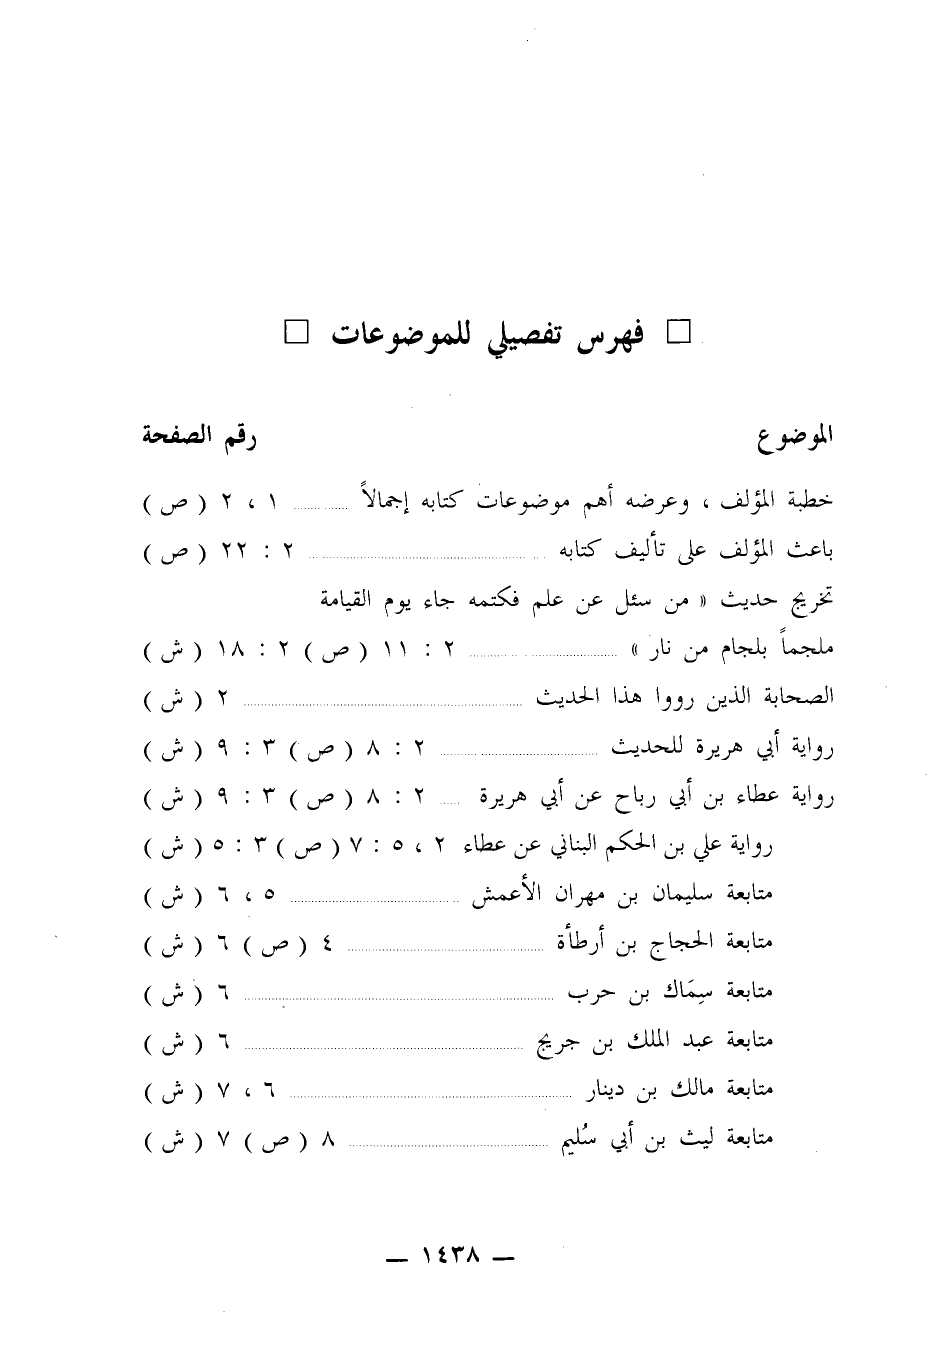 □ فهرس تفصيلي للموضوعات □
الموضوع رقم الصفحة
خطبة المؤلف ، وعرضه أهم موضوعات كتابه إجمالاً ........ ١ ، ٢ ( ص )
باعث المؤلف على تأليف كتابه ........ ٢ : ٢٢ ( ص )
تخريج حديث « من سئل عن علم فكتمه جاء يوم القيامة
ملجماً بلجام من نار » ........ ٢ : ١١ ( ص ) ٢ : ١٨ ( ش )
الصحابة الذين رووا هذا الحديث ........ ٢ ( ش )
رواية أبي هريرة للحديث ........ ٢ : ٨ ( ص ) ٣ : ٩ ( ش )
رواية عطاء بن أبي رباح عن أبي هريرة ..... ٢ : ٨ ( ص ) ٣ : ٩ ( ش )
رواية علي بن الحكم البناني عن عطاء ٢ ، ٥ : ٧ ( ص ) ٣ : ٥ ( ش )
متابعة سليمان بن مهران الأعمش ........ ٥ ، ٦ ( ش )
متابعة الحجاج بن أرطأة ........ ٤ ( ص ) ٦ ( ش )
متابعة سِمَاك بن حرب ........ ٦ ( ش )
متابعة عبد الملك بن جريج ........ ٦ ( ش )
متابعة مالك بن دينار ........ ٦ ، ٧ ( ش )
متابعة ليث بن أبي سُليم ........ ٨ ( ص ) ٧ ( ش )
— ١٤٣٨ —